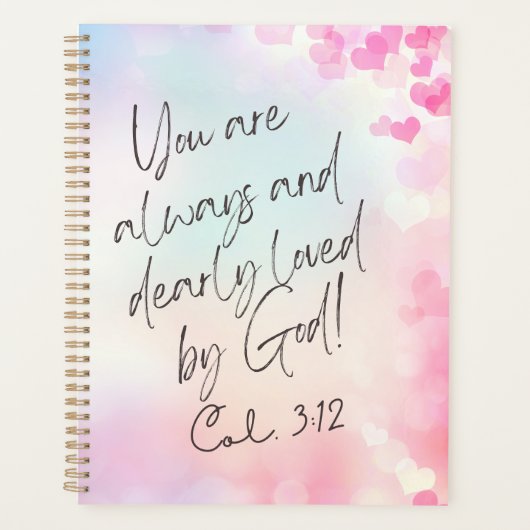 You are
always and
dearly loved
by God!
Col. 3:12